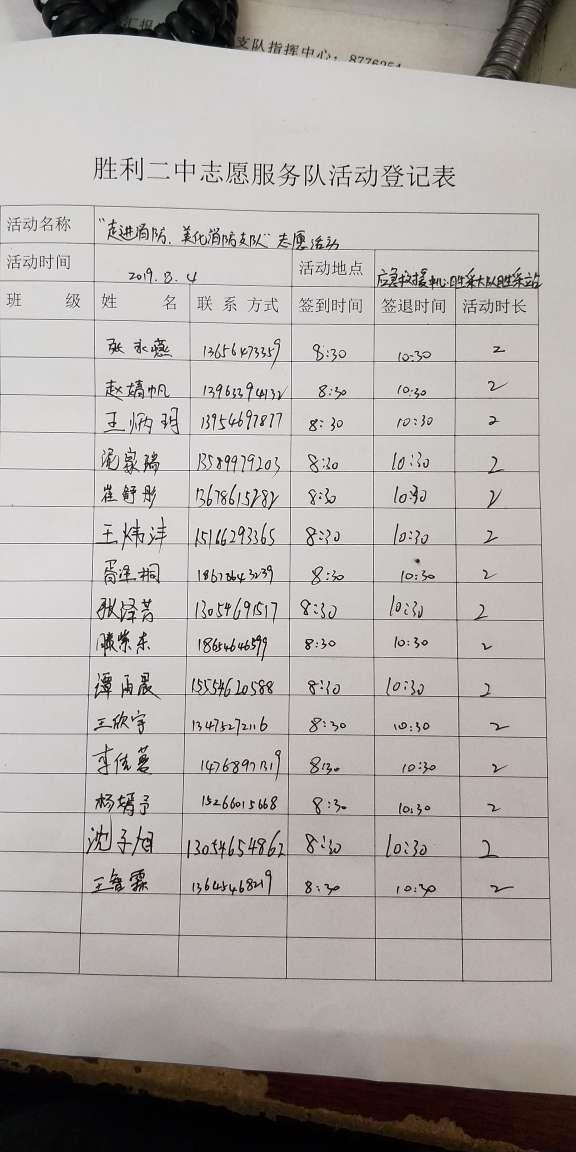 汇报
支队指挥中心：8776254
胜利二中志愿服务队活动登记表
活动名称 "走进消防、美化消防支队"志愿活动
活动时间 2019.8.4 活动地点 应急救援中心胜采大队胜采站
班 级 姓 名 联系方式 签到时间 签退时间 活动时长
张永燕 13656473359 8:30 10:30 2
赵婧帆 13963394132 8:30 10:30 2
王炳玥 13954697877 8:30 10:30 2
泥家瑞 13589979203 8:30 10:30 2
崔舒彤 13678615282 8:30 10:30 2
王炜沣 15166293365 8:30 10:30 2
8:30 10:30 2
张泽芳 13054691517 8:30 10:30 2
滕紫东 18654646599 8:30 10:30 2
谭雨晨 15554620588 8:30 10:30 2
王欣宇 13475272116 8:30 10:30 2
李佳蔓 8:30 10:30 2
杨婿予 15266015668 8:30 10:30 2
沈子旭 13054654862 8:30 10:30 2
王智霖 13645468219 8:30 10:30 2